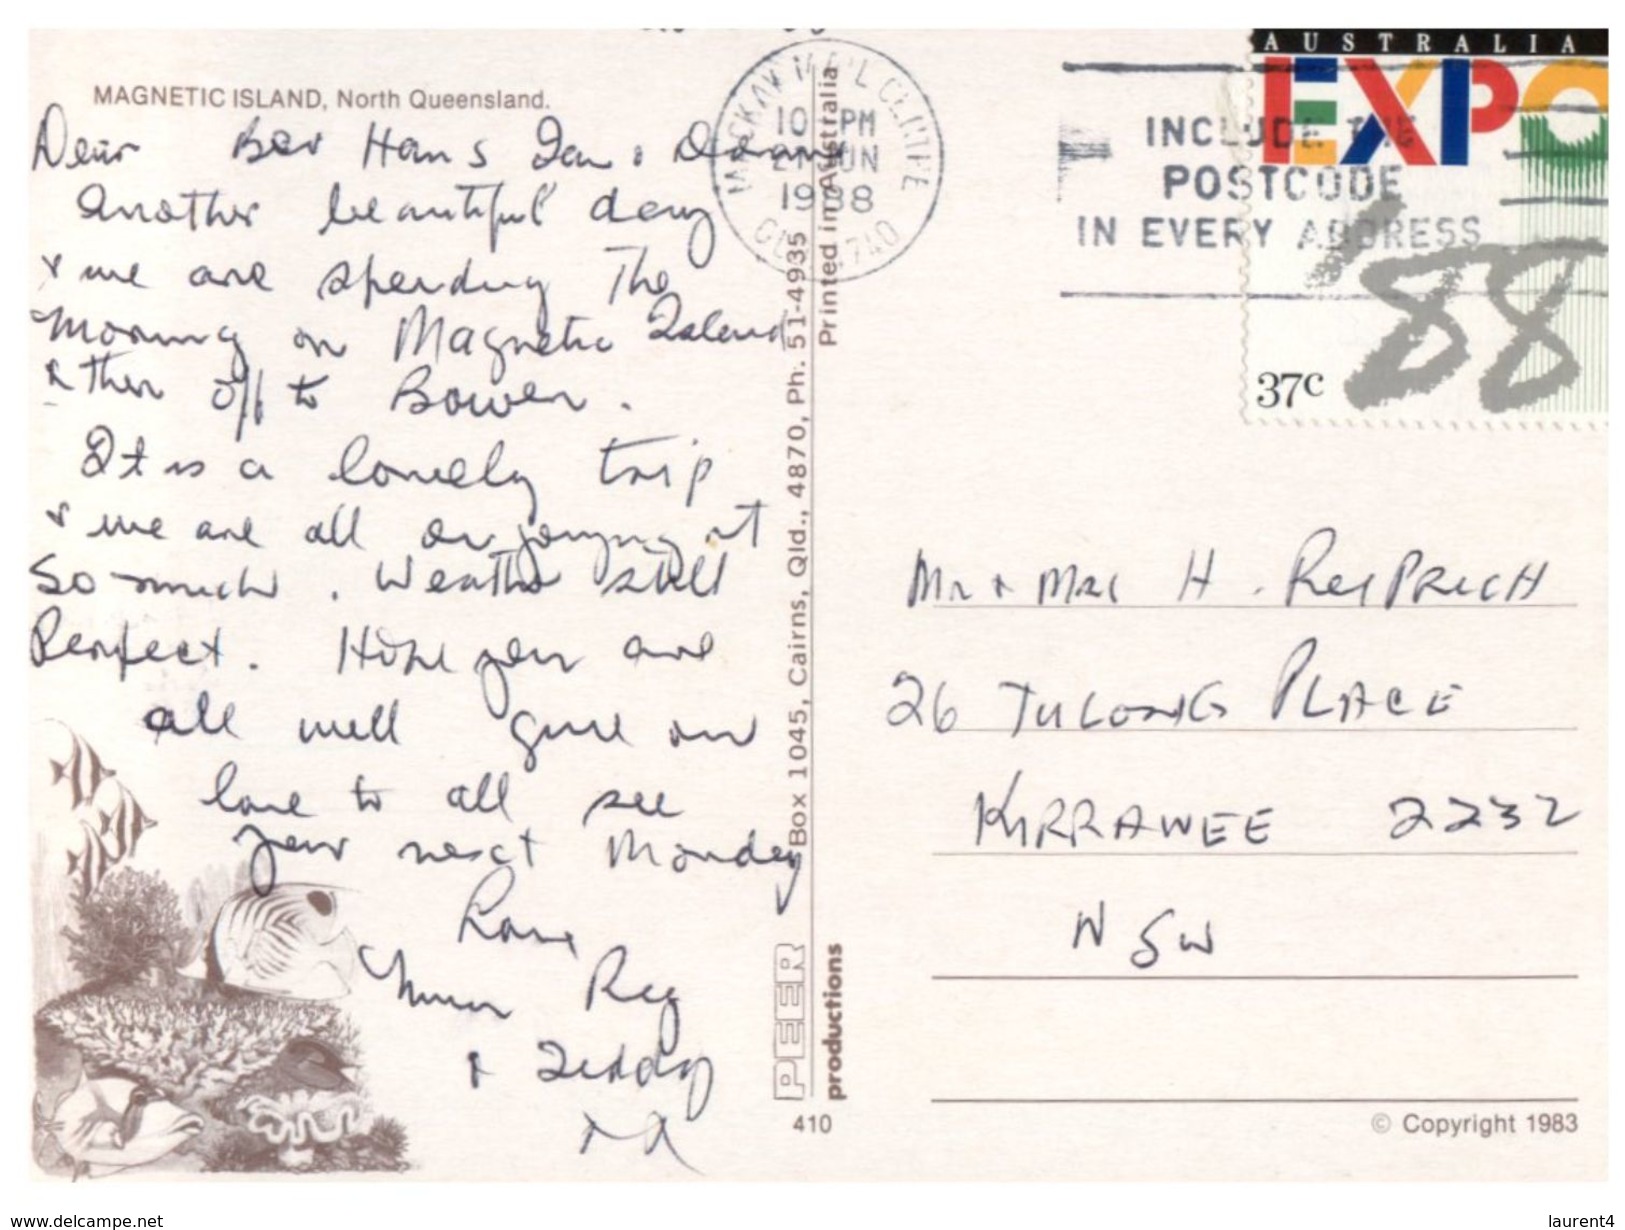 MAGNETIC ISLAND, North Queensland.
Dear Bev Hans Ian &
Another beautiful day
& we are spending The
Morning on Magnetic Island
& then off to Bowen.
It is a lovely trip
& we are all enjoying it
So much. Weather still
Perfect. Hope you are
all well give our
love to all see
you next Monday
Love,
Mum Reg
& Teddy
PEER productions
Box 1045, Cairns, Qld., 4870, Ph. 51-4935
Printed in Australia
410
MACKAY MAIL CENTRE
10 PM
JUN
1988
QLD 4740
INCLUDE THE
POSTCODE
IN EVERY ADDRESS
AUSTRALIA
EXPO
'88
37c
Mr & Mrs H. REIPRICH
26 TULONG PLACE
KIRRAWEE 2232
NSW
© Copyright 1983
www.delcampe.net
laurent4